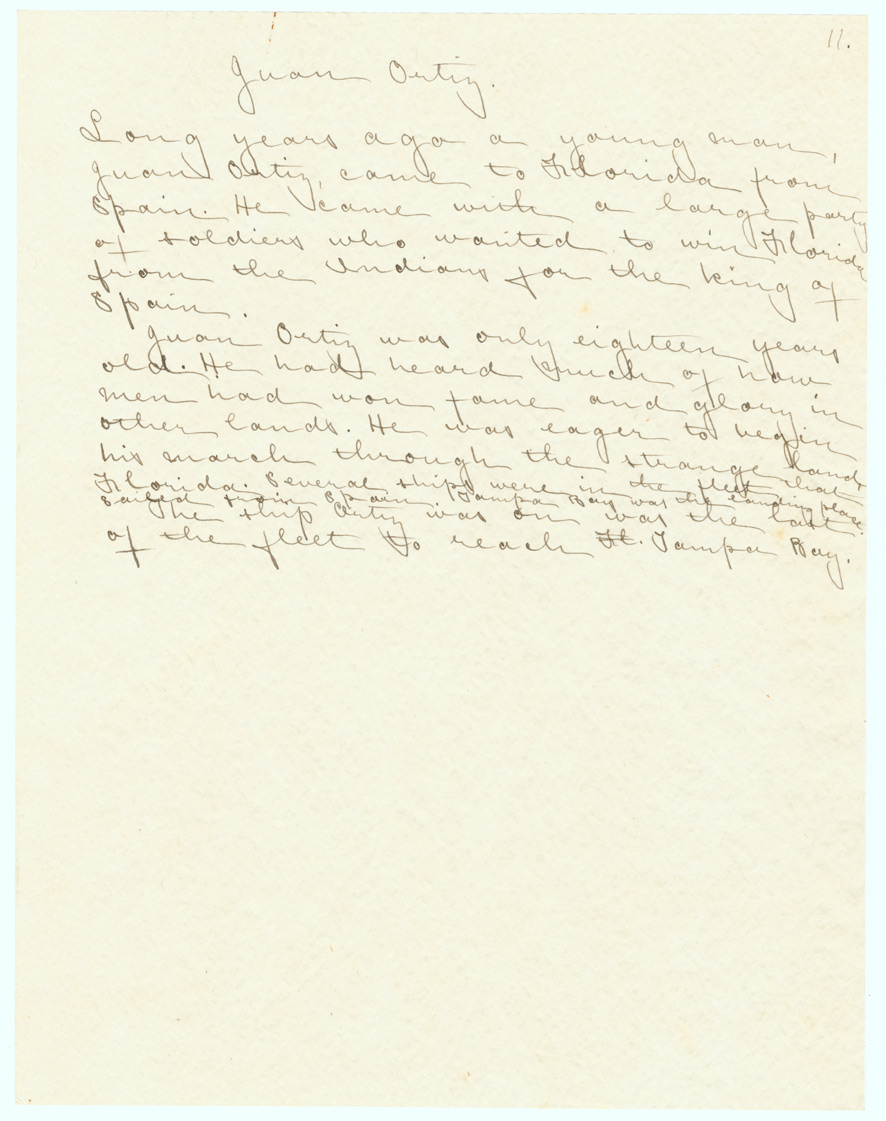 11.
Juan Ortiz.
Long years ago a young man,
Juan Ortiz, came to Florida from
Spain. He came with a large party
of soldiers who wanted to win Florida
from the Indians for the king of
Spain.
Juan Ortiz was only eighteen years
old. He had heard much of how
men had won fame and glory in
other lands. He was eager to begin
his march through the strange land,
Florida. Several ships were in the fleet that
sailed from Spain. Tampa Bay was the landing place.
The ship Ortiz was on was the last
of the fleet to reach Ft. Tampa Bay.